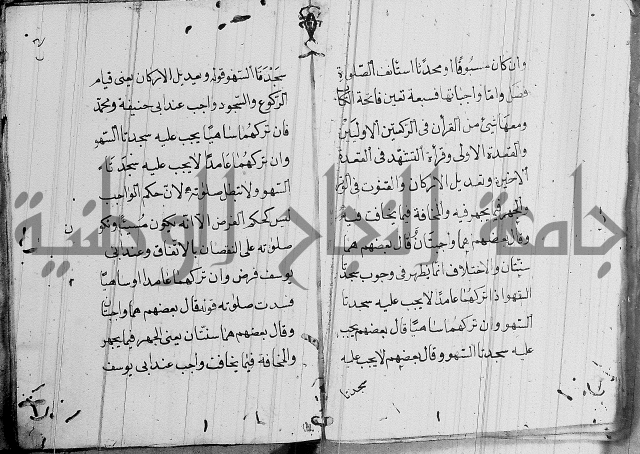 وان كان مسبوقا او محدثا استانف الصلوة
فصل واما واجباتها فسبعة تعين فاتحة الكتاب
ومعها شئ من القرآن في الركعتين الاوليين
والقعدة الاولى وقرأة التشهد في القعدة
الاخيرة وتعديل الاركان والقنوت في الوتر
والجهر فيما يجهر فيه والمخافة فيما يخافت فيه
وقال بعضهم هما واجبتان قال بعضهم هما
سنتان والاختلاف انما يظهر في وجوب سجدتا
السهو اذا تركهما عامدا لا يجب عليه سجدتا
السهو وان تركهما ساهيا قال بعضهم يجب
عليه سجدتا السهو وقال بعضهم لا يجب عليه
سجدتا
سجدتا السهو قوله وتعديل الاركان يعني قيام
الركوع والسجود واجب عند ابي حنيفة ومحمد
فان تركهما ساهيا يجب عليه سجدتا السهو
وان تركهما عامدا لا يجب عليه سجدتاء
السهو ولا تبطل صلوته لان حكم الواجب
ليس كحكم الفرض الا انه يكون مسيئا وتكو
صلوته على النقصان بالاتفاق وعند ابي
يوسف فرض وان تركهما عامدا او ساهيا
فسدت صلوته قوله قال بعضهم هما واجبتان
وقال بعضهم هما سنتان يعني الجهر فيما يجهر
والمخافة فيما يخافت واجب عند ابي يوسف
جامعة النجاح الوطنية